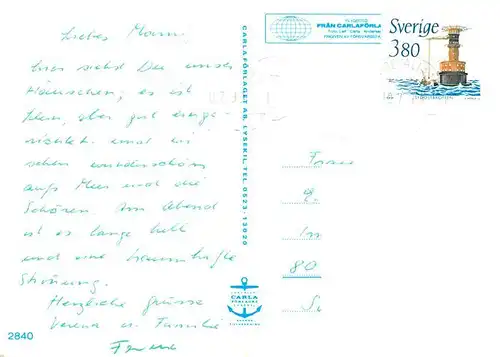 Liebes Mami
hier siehst Du unser
Häuschen, es ist
klein, aber gut einge-
richtet. und wir
sehen wunderschön
aufs Meer und die
Schären. Am Abend
ist es lange hell
und eine traumhafte
Stimmung.
Herzliche Grüsse
Verena u. Familie
2840
CARLAFÖRLAGET AB, LYSEKIL TEL 0523-13020
FRÅN CARLAFÖRLAGET
Sverige
380
Frau
80
CARLA
FÖRLAGET